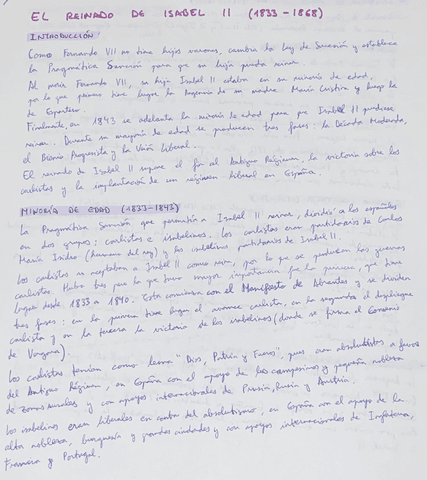 EL REINADO DE ISABEL II (1833-1868)
INTRODUCCIÓN
Como Fernando VII no tiene hijos varones, cambia la Ley de Sucesión y establece
la Pragmática Sanción para que su hija pueda reinar.
Al morir Fernando VII, su hija Isabel II estaba en su minoría de edad,
por lo que primero tiene lugar la Regencia de su madre María Cristina y luego la
de Espartero.
Finalmente, en 1843 se adelanta la mayoría de edad para que Isabel II pudiese
reinar. Durante su mayoría de edad se producen tres fases: la Década Moderada,
el Bienio Progresista y la Unión Liberal.
El reinado de Isabel II supone el fin al Antiguo Régimen, la victoria sobre los
carlistas y la implantación de un régimen liberal en España.
MINORÍA DE EDAD (1833-1843)
La Pragmática Sanción que permitía a Isabel II reinar, dividió a los españoles
en dos grupos: carlistas e isabelinos. Los carlistas eran partidarios de Carlos
María Isidro (hermano del rey) y los isabelinos partidarios de Isabel II.
Los carlistas no aceptaban a Isabel II como reina, por lo que se producen las guerras
carlistas. Hubo tres que la que tuvo mayor importancia fue la primera, que tuvo
lugar desde 1833 a 1840. Esta comienza con el Manifiesto de Abrantes y se divide en
tres fases: en la primera tiene lugar el avance carlista, en la segunda el despliegue
carlista y en la tercera la victoria de los isabelinos (donde se firma el Convenio
de Vergara).
Los carlistas tenían como lema "Dios, Patria y Fueros", pues eran absolutistas a favor
del Antiguo Régimen, en España con el apoyo de los campesinos y pequeña nobleza
de zonas rurales y con apoyos internacionales de Prusia, Rusia y Austria.
Los isabelinos eran liberales en contra del absolutismo, en España con el apoyo de la
alta nobleza, burguesía y grandes ciudades y con apoyos internacionales de Inglaterra,
Francia y Portugal.